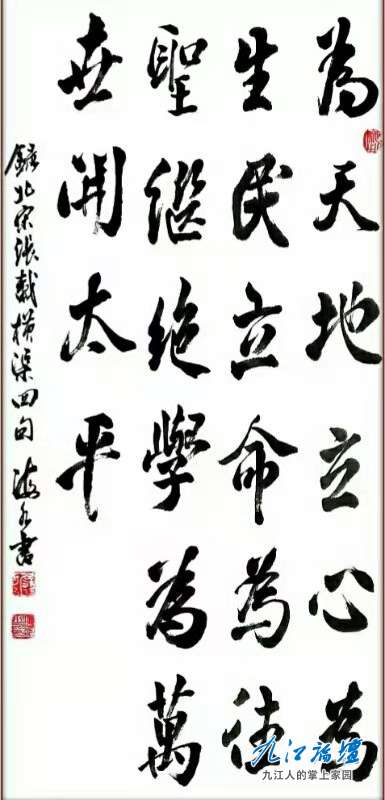 為天地立心為
生民立命為往
聖繼絕學為萬
世開太平
錄北宋張載橫渠四句 書
九江論壇
九江人的掌上家园